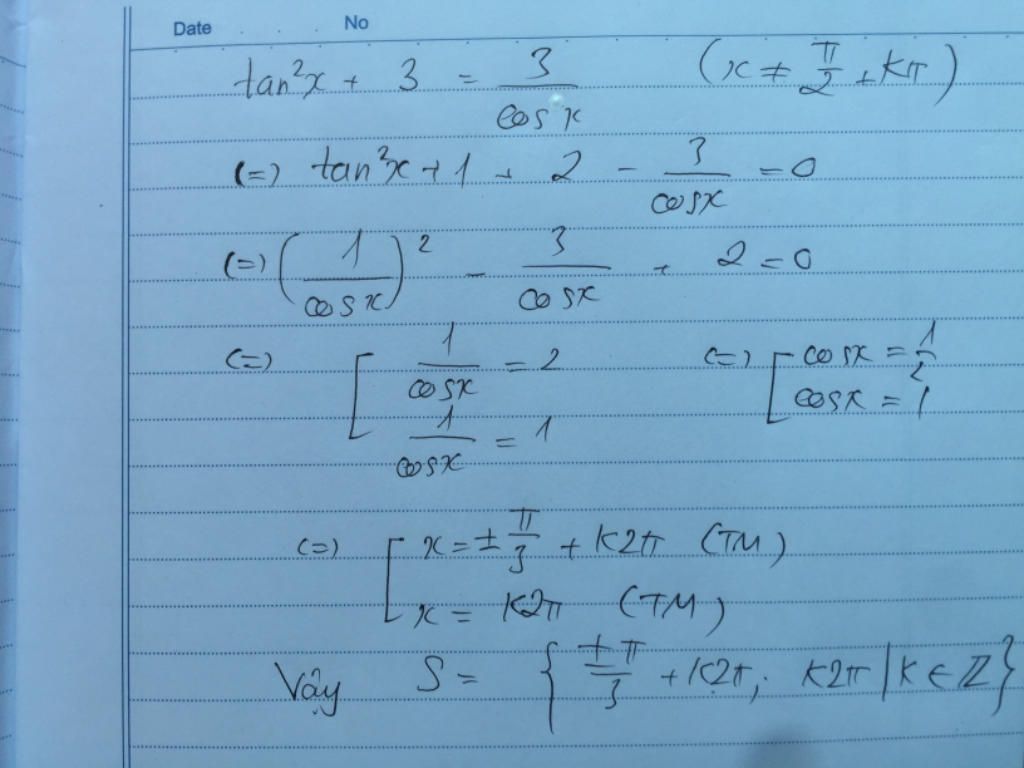 Date No
tan²x + 3 = 3/cosx (x ≠ π/2 + kπ)
(=) tan²x + 1 + 2 - 3/cosx = 0
(=) (1/cosx)² - 3/cosx + 2 = 0
(=) [ 1/cosx = 2 (=) [ cosx = 1/2
1/cosx = 1 cosx = 1
(=) [ x = ± π/3 + k2π (TM)
x = k2π (TM)
Vậy S = { ±π/3 + k2π; k2π | k ∈ Z }